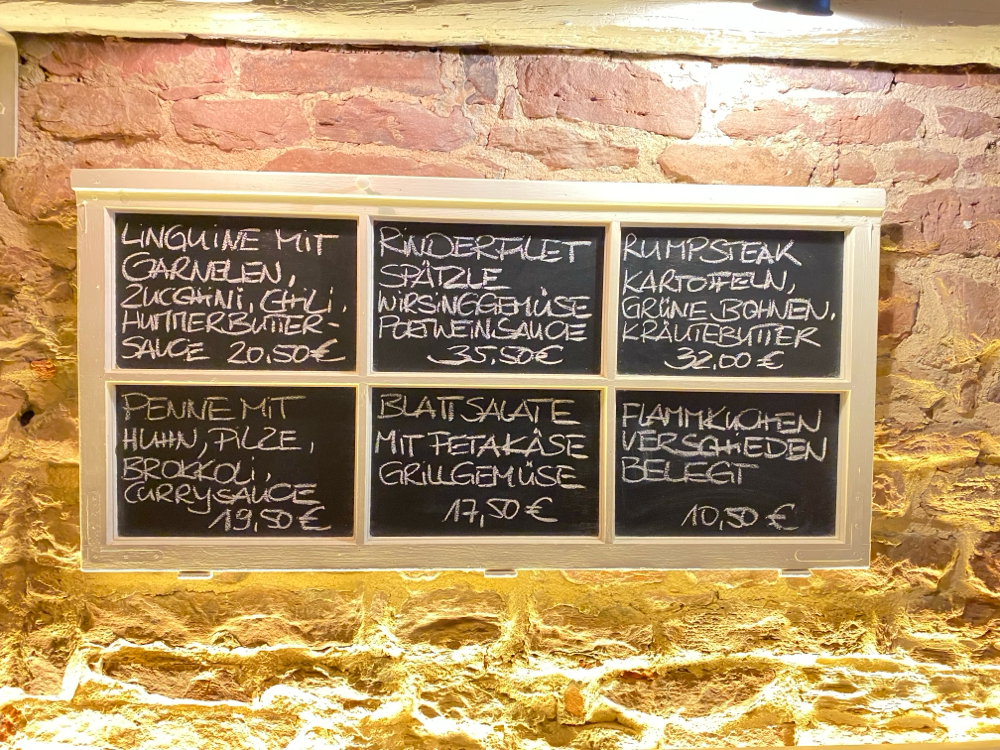 LINGUINE MIT
GARNELEN,
ZUCCHINI, CHILI,
HUMMERBUTTER-
SAUCE 20,50€
RINDERFILET
SPÄTZLE
WIRSINGGEMÜSE
PORTWEINSAUCE
35,50€
RUMPSTEAK
KARTOFFELN,
GRÜNE BOHNEN,
KRÄUTEBUTTER
32,00 €
PENNE MIT
HUHN, PILZE,
BROKKOLI,
CURRYSAUCE
19,50 €
BLATTSALATE
MIT FETAKÄSE
GRILLGEMÜSE
17,50 €
FLAMMKUCHEN
VERSCHIEDEN
BELEGT
10,50 €